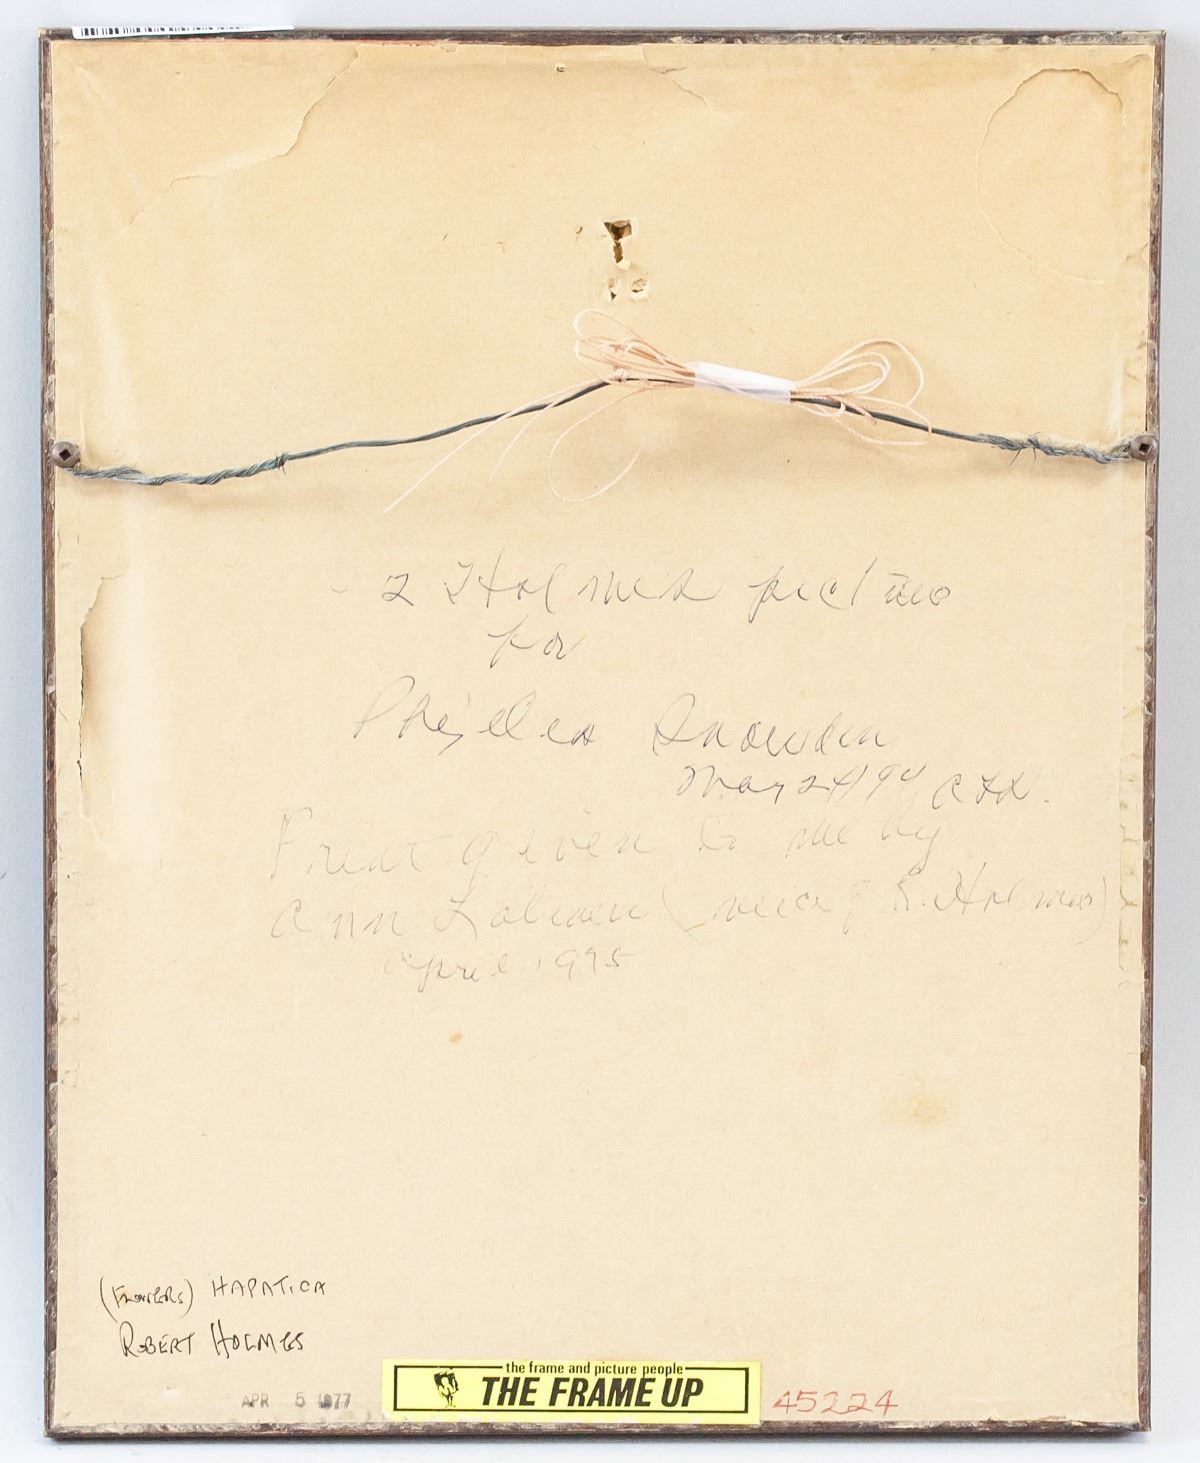 2 Holmes pictures
for
Phyllis Snowden
May 24/94
Print given to me by
Ann (niece of R. Holmes)
April 1975
(FLOWERS) HAPATICA
ROBERT HOLMES
the frame and picture people
THE FRAME UP
APR 5 1977
45224